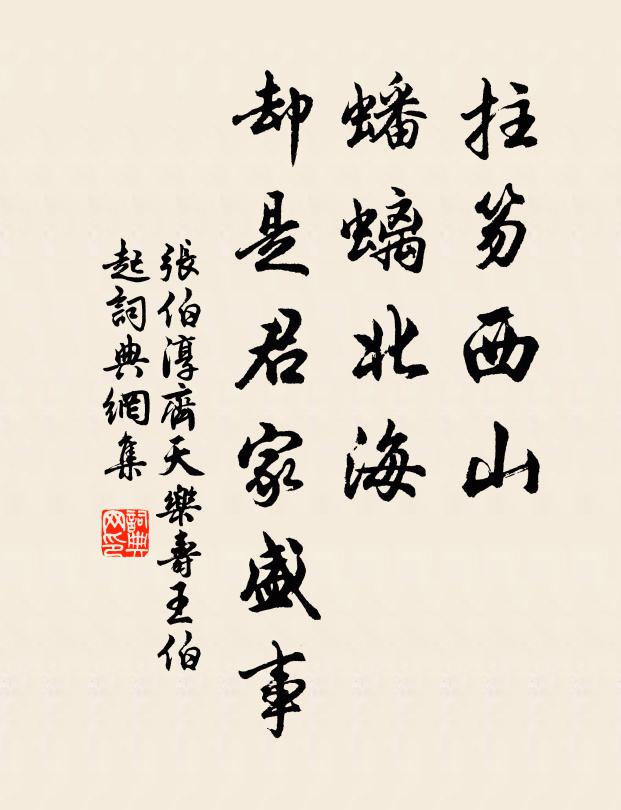 拄笏西山
蟠螭北海
却是君家盛事
張伯淳齊天樂壽王伯
起詞典網集
詞典網印